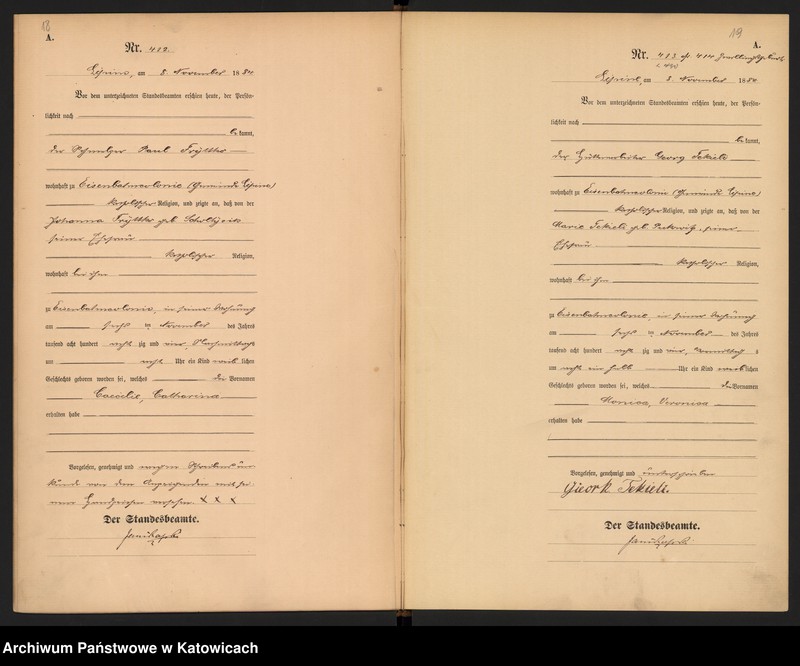 18
A.
Nr. 412.
Lipine, am 8. November 1884
Vor dem unterzeichneten Standesbeamten erschien heute, der Persön-
lichkeit nach
bekannt,
der Paul
wohnhaft zu Eisenbahncolonie (Gemeinde Lipine)
katholischer Religion, und zeigte an, daß von der
Johanna geb.
seiner Ehefrau
katholischer Religion,
wohnhaft bei ihm
zu Eisenbahncolonie, in seiner Wohnung
am sechs ten November des Jahres
tausend acht hundert acht zig und vier, Nachmittags
um acht Uhr ein Kind weiblichen
Geschlechts geboren worden sei, welches die Vornamen
Caecilie, Catharina
erhalten habe
Vorgelesen, genehmigt und wegen Schreibens un-
kunde von dem Anzeigenden mit sei-
nem Handzeichen versehen X X X
Der Standesbeamte.
19
A.
Nr. 413 414
Lipine, am 8. November 1884
Vor dem unterzeichneten Standesbeamten erschien heute, der Persön-
lichkeit nach
bekannt,
der Hüttenarbeiter Georg Tekiela
wohnhaft zu Eisenbahncolonie (Gemeinde Lipine)
katholischer Religion, und zeigte an, daß von der
Marie Tekiela geb. seiner
Ehefrau
katholischer Religion,
wohnhaft bei ihm
zu Eisenbahncolonie, in seiner Wohnung
am sechs ten November des Jahres
tausend acht hundert acht zig und vier, Vormittags
um acht ein halb Uhr ein Kind weiblichen
Geschlechts geboren worden sei, welches die Vornamen
Monica, Veronica
erhalten habe
Vorgelesen, genehmigt und unterschrieben
Gieork Tekiela.
Der Standesbeamte.
Archiwum Państwowe w Katowicach